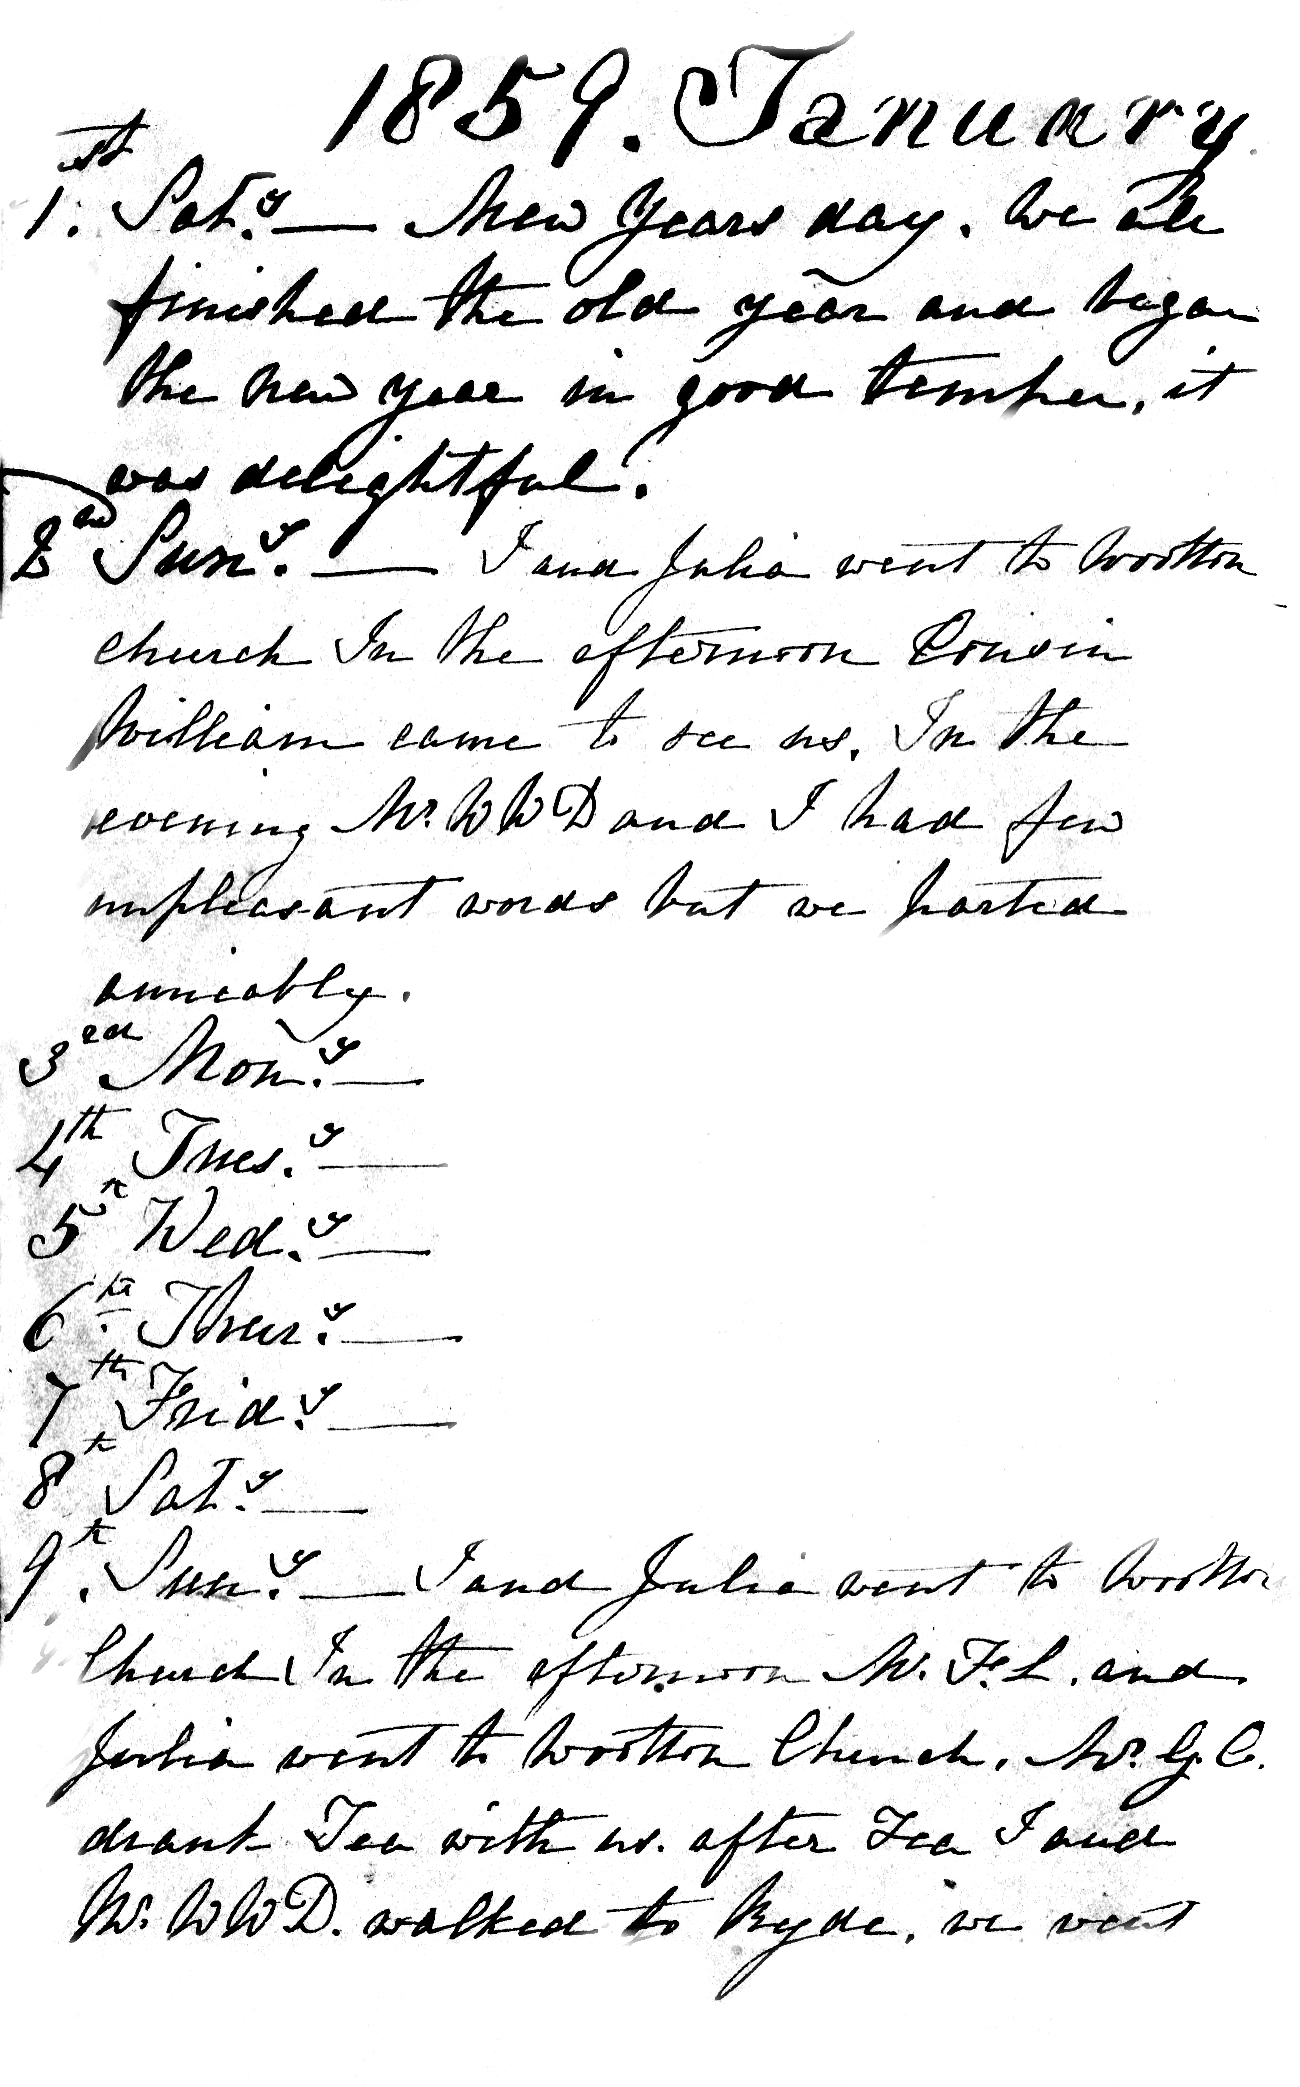 1859. January
1st. Sat.y — New Years day. We all
finished the old year and began
the new year in good temper, it
was delightful.
2nd Sun.y — I and Julia went to Wootton
church In the afternoon Cousin
William came to see us. In the
evening Mr. WWD and I had few
unpleasant words but we parted
amicably.
3rd Mon.y —
4th Tues.y —
5th Wed.y —
6th Thur.y —
7th Frid.y —
8th Sat.y —
9th. Sun.y — I and Julia went to Wootton
Church In the afternoon Mr. F. L. and
Julia went to Wootton Church. Mr. G. C.
drank Tea with us. after Tea I and
Mr. WWD. walked to Ryde, we went